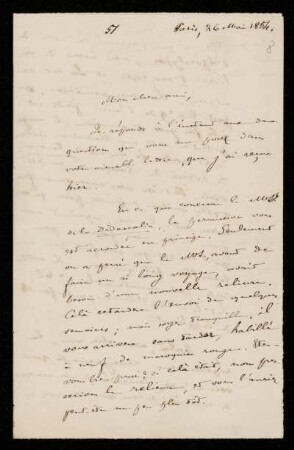 51
Paris, 26 Mai 1854.
8
Mon cher ami,
Je réponds à l'instant aux deux
question que vous me posez dans
votre aimable lettre, que j'ai reçue
hier.
En ce qui concerne le Mst
de la Didascalia, la permission vous
est accordée en principe. Seulement
on a pensé que le Mst, avant de
faire un si long voyage, avait
besoin d'une nouvelle reliure.
Cela retardera l'envoi de quelques
semaines; mais soyez tranquille, il
vous arrivera sans tarder, habillé
à neuf de maroquin rouge.
vous
serions la reliure, et vous l'auriez
peut-être un peu plus tôt.